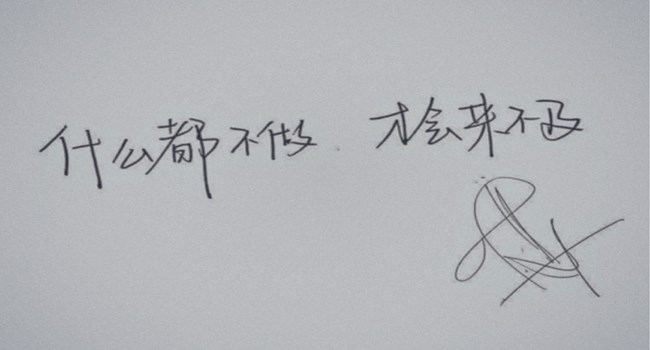 什么都不做 才会来不及